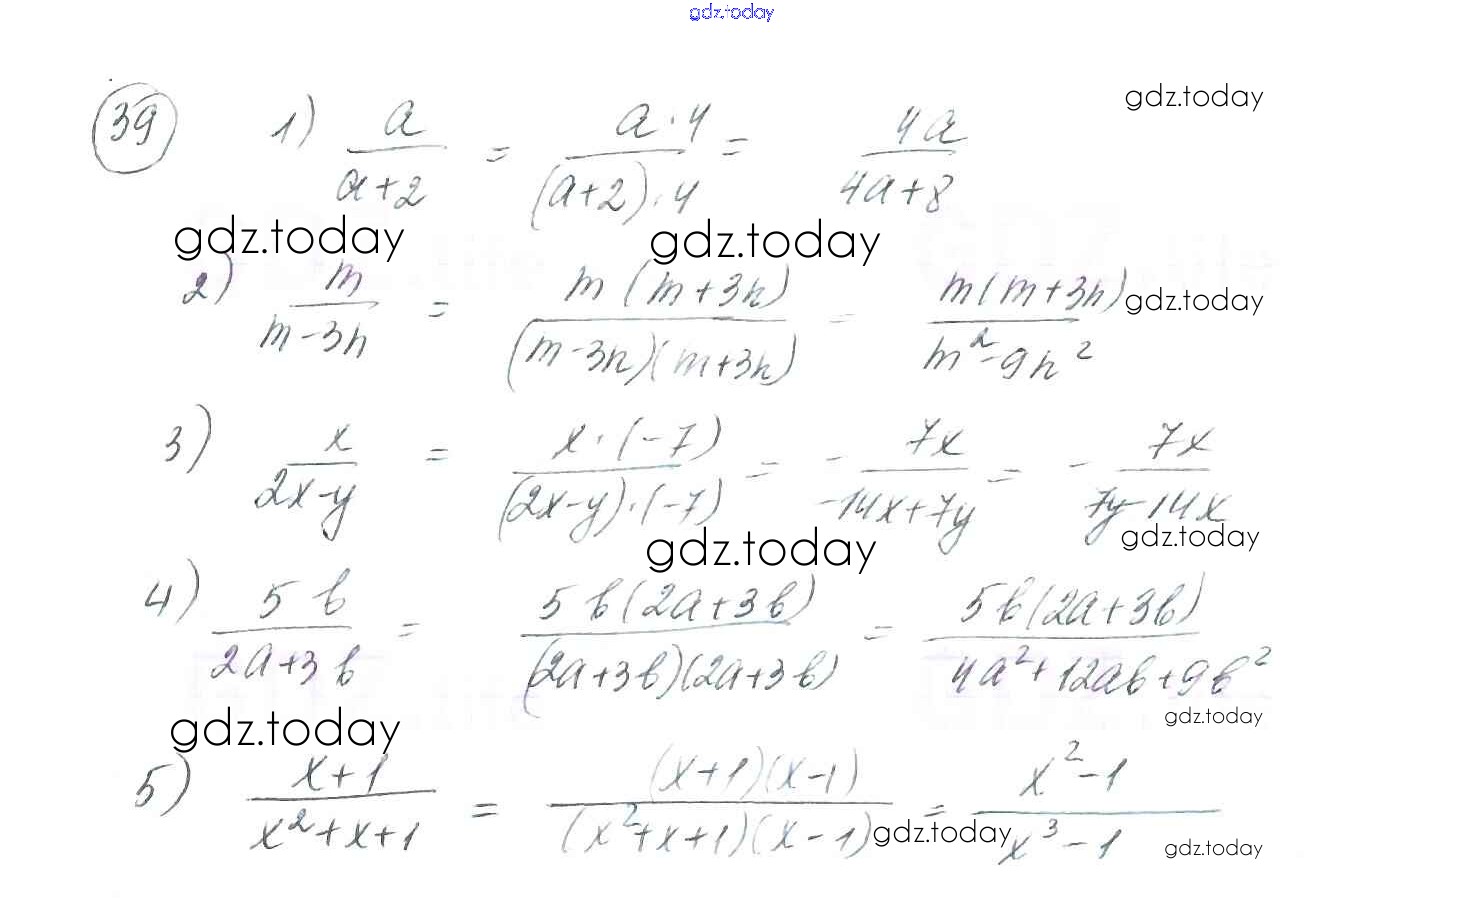 gdz.today
39 1) a/(a+2) = (a·4)/((a+2)·4) = 4a/(4a+8)
gdz.today
gdz.today gdz.today
2) m/(m-3n) = (m(m+3n))/((m-3n)(m+3n)) = (m(m+3n))/(m²-9n²)
gdz.today
3) x/(2x-y) = (x·(-7))/((2x-y)·(-7)) = - 7x/(-14x+7y) = - 7x/(7y-14x)
gdz.today gdz.today
4) 5b/(2a+3b) = (5b(2a+3b))/((2a+3b)(2a+3b)) = (5b(2a+3b))/(4a²+12ab+9b²)
gdz.today gdz.today
5) (x+1)/(x²+x+1) = ((x+1)(x-1))/((x²+x+1)(x-1)) = (x²-1)/(x³-1)
gdz.today gdz.today